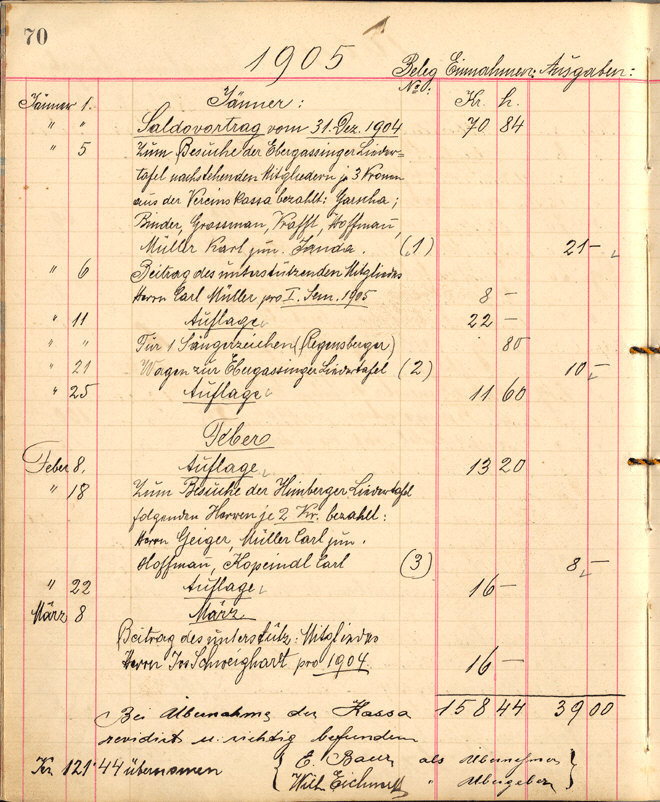 70
1905
Beleg Einnahmen: Ausgaben:
No:
Jänner 1. Jänner: Kr. h.
" " Saldovortrag vom 31. Dez. 1904 70 84
" 5 Zum Besuche der Ebergassinger Lieder=
tafel nachstehenden Mitgliedern je 3 Kronen
aus der Vereinskassa bezahlt: Garscha;
Binder, Grossman, Krafft, Hoffmau,
Müller Karl jun. Janda. (1) 21 –
" 6 Beitrag des unterstützenden Mitgliedes
Herrn Carl Müller pro I. Sem. 1905 8 –
" 11 Auflage 22 –
" " Für 1 Sängerzeichen (Regensberger) 80
" 21 Wagen zur Ebergassinger Liedertafel (2) 10,–
" 25 Auflage 11 60
Feber
Feber 8. Auflage 13 20
" 18 Zum Besuche der Himberger Liedertafel
folgenden Herren je 2 Kr. bezahlt:
Herrn Geiger, Müller Carl jun.
Hoffmau, Kopeindl Carl (3) 8,–
" 22 Auflage 16 –
März 8 März
Beitrag des unterstütz: Mitgliedes
Herrn Jos Schweighart pro 1904. 16 –
Bei Übernahme der Kassa 158 44 39 00
revidirt u. richtig befunden
Kr. 121·44 übernomen { E. Bauer als Übernehmer }
Wilh Eichwerth " Übergeber